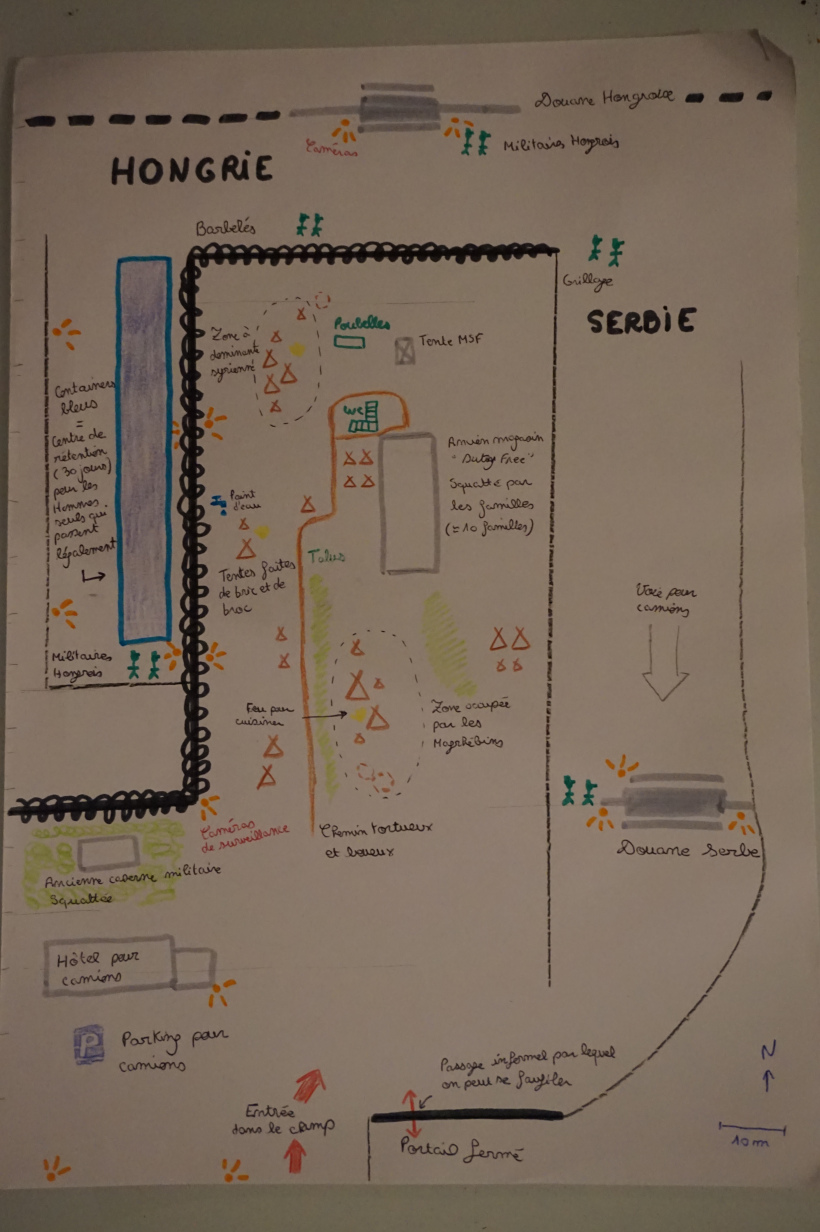 Douane Hongroise
Caméras
Militaires Hongrois
HONGRIE
Barbelés
Grillage
SERBIE
Zone à
dominante
syrienne
Poubelles
Tente MSF
Containers
bleus
=
Centre de
rétention
(30 jours)
pour les
Hommes
seuls qui
passent
légalement
WC
Ancien magasin
"Duty Free"
Squatté par
les familles
(≃10 familles)
Point
d'eau
Tentes faites
de bric et de
broc
Talus
Voie pour
camions
Militaires
Hongrois
Feu pour
cuisiner
Zone occupée
par les
Maghrébins
Caméras
de surveillance
Chemin tortueux
et boueux
Douane Serbe
Ancienne caserne militaire
Squattée
Hôtel pour
camions
P
Parking pour
camions
Passage informel par lequel
on peut se faufiler
Entrée
dans le camp
Portail fermé
N
10m